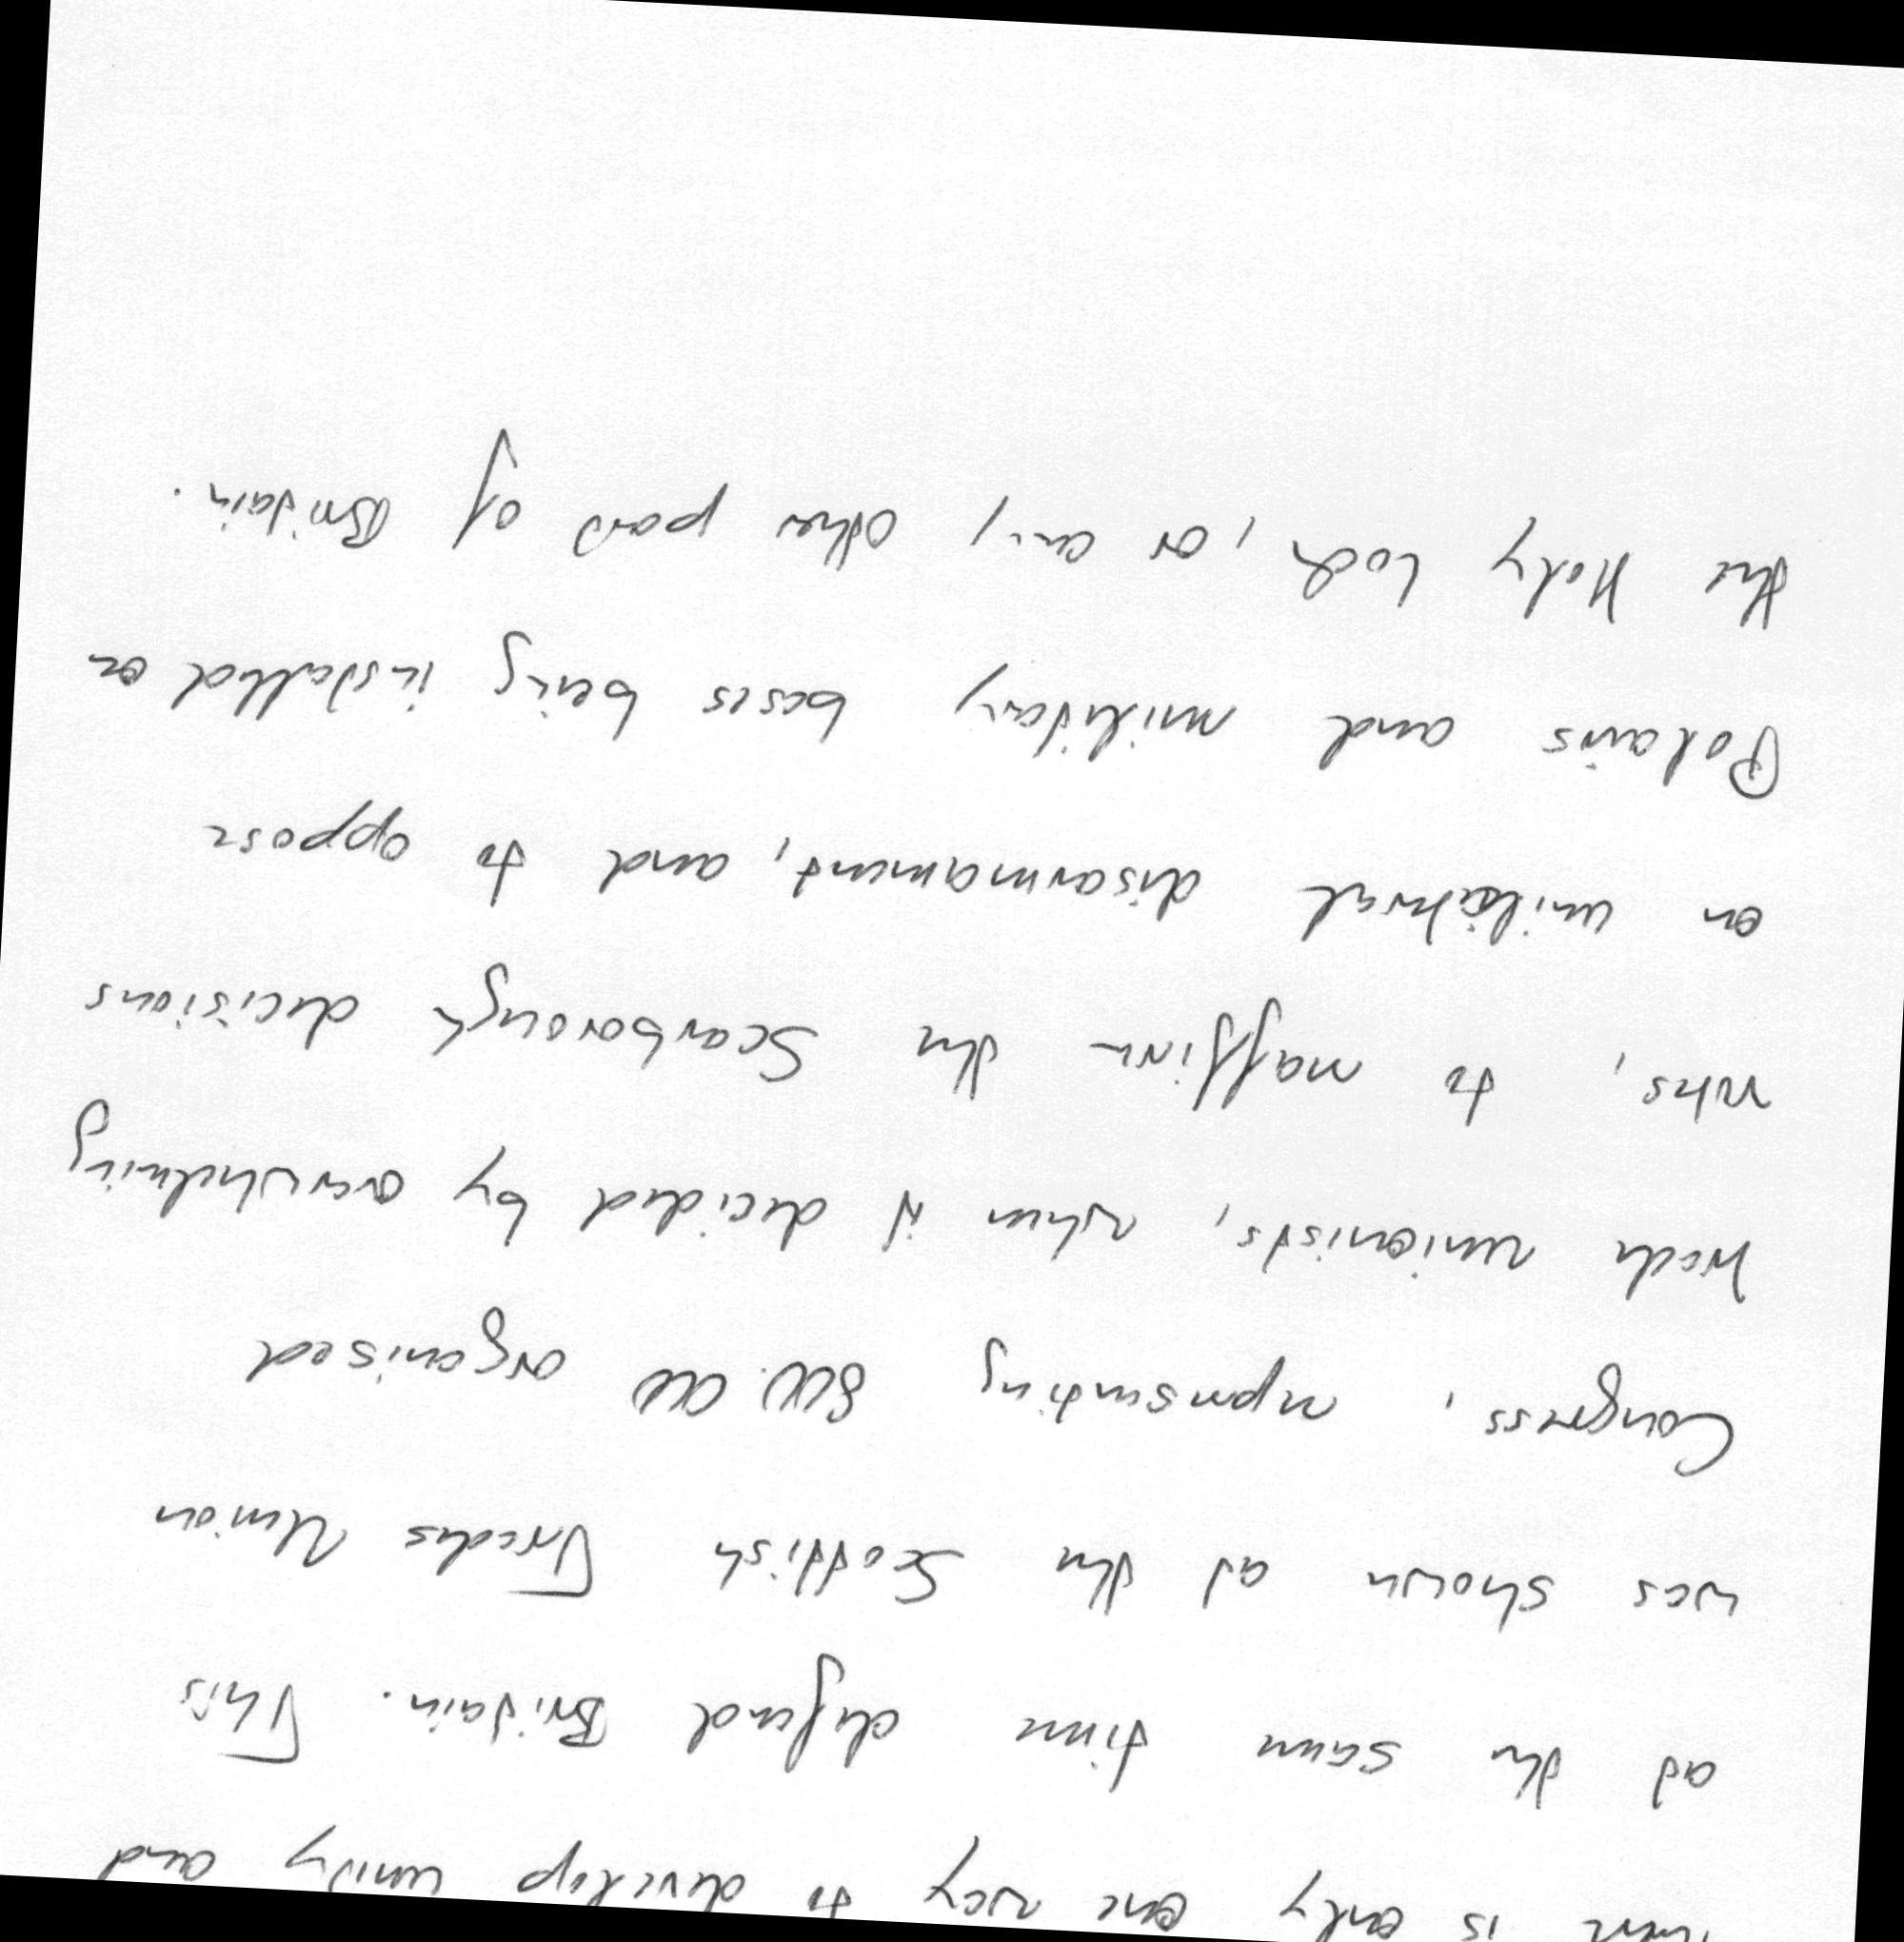 there is only one way to develop unity and
at the same time defend Britain. This
was shown at the Scottish Trades Union
Congress, representing all organised
trade unionists, when it decided by overwhelming
votes, to reaffirm the Scarborough decisions
on unilateral disarmament, and to oppose
Polaris and military bases being installed on
the Holy Loch, or any other part of Britain.